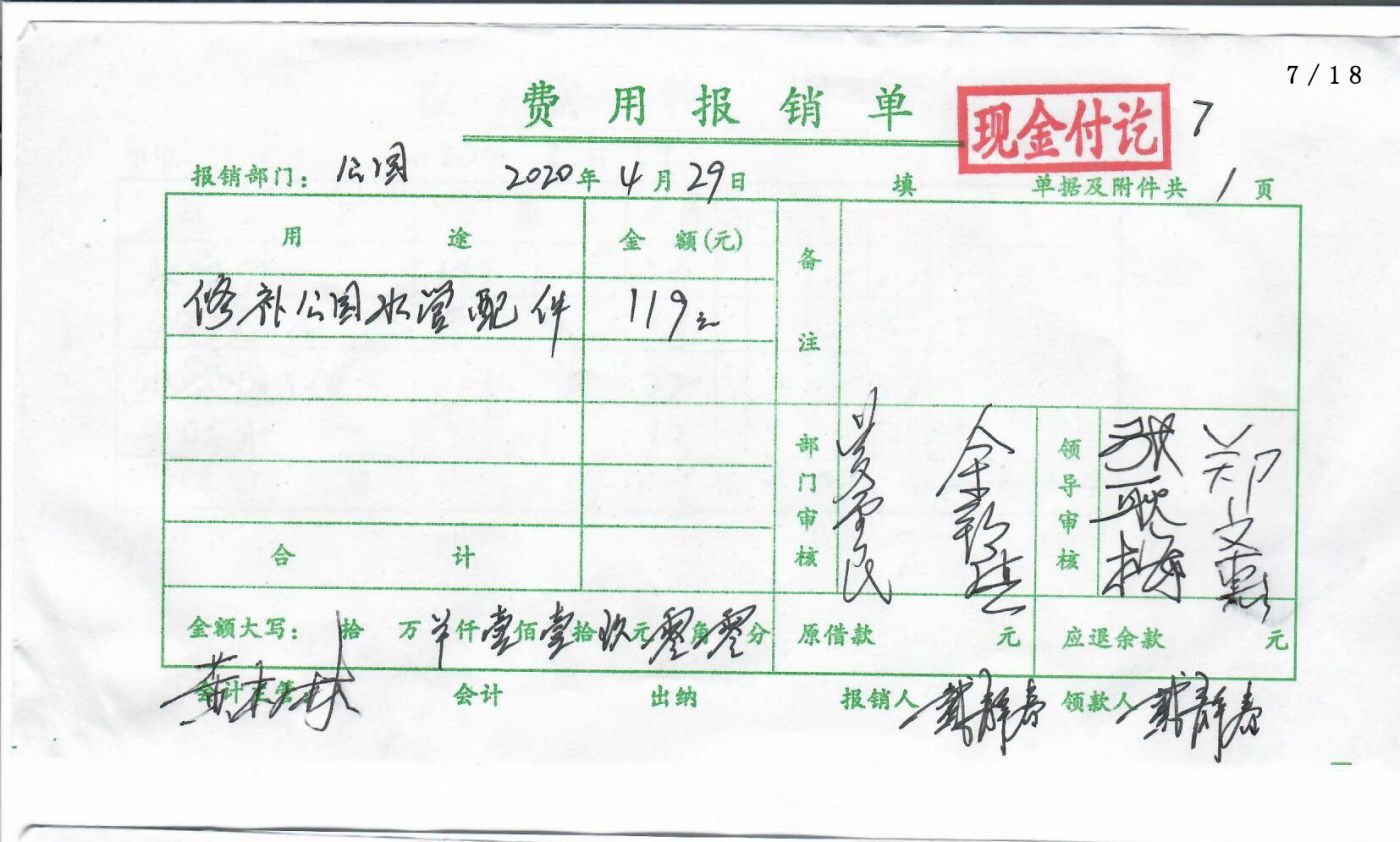 7/18
费用报销单
现金付讫
7
报销部门: 公园 2020年4月29日 填 单据及附件共 1 页
用途 金额(元) 备注
修补公园水管配件 119元
合计
部门审核
领导审核 郑文惠
金额大写: 拾 万 仟壹佰壹拾玖元零角零分 原借款 元 应退余款 元
会计主管 会计 出纳 报销人 戴静春 领款人 戴静春